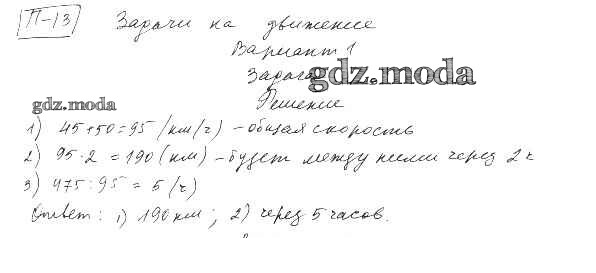 П-13 Задачи на движение
Вариант 1
Задача
gdz.moda
Решение
gdz.moda
1) 45+50=95 (км/ч) – общая скорость
2) 95·2 = 190 (км) – будет между ними через 2 ч
3) 475:95 = 5 (ч)
Ответ: 1) 190 км; 2) через 5 часов.